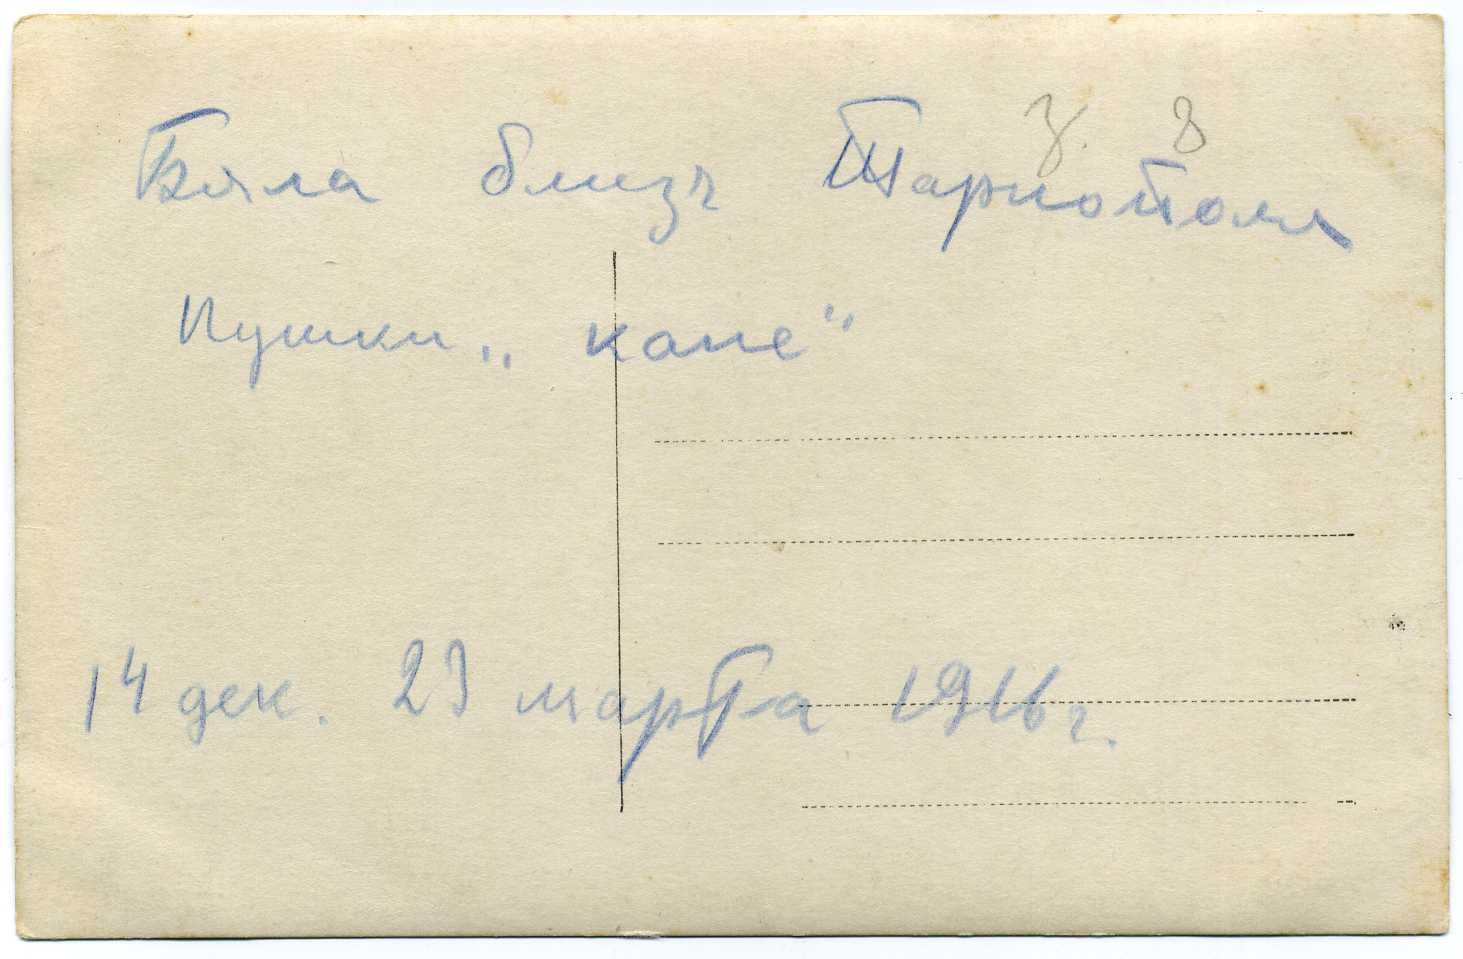 З. 8
Бяла близъ Тарнополя
Пушки „ капе"
14 дек. 23 марта 1916 г.